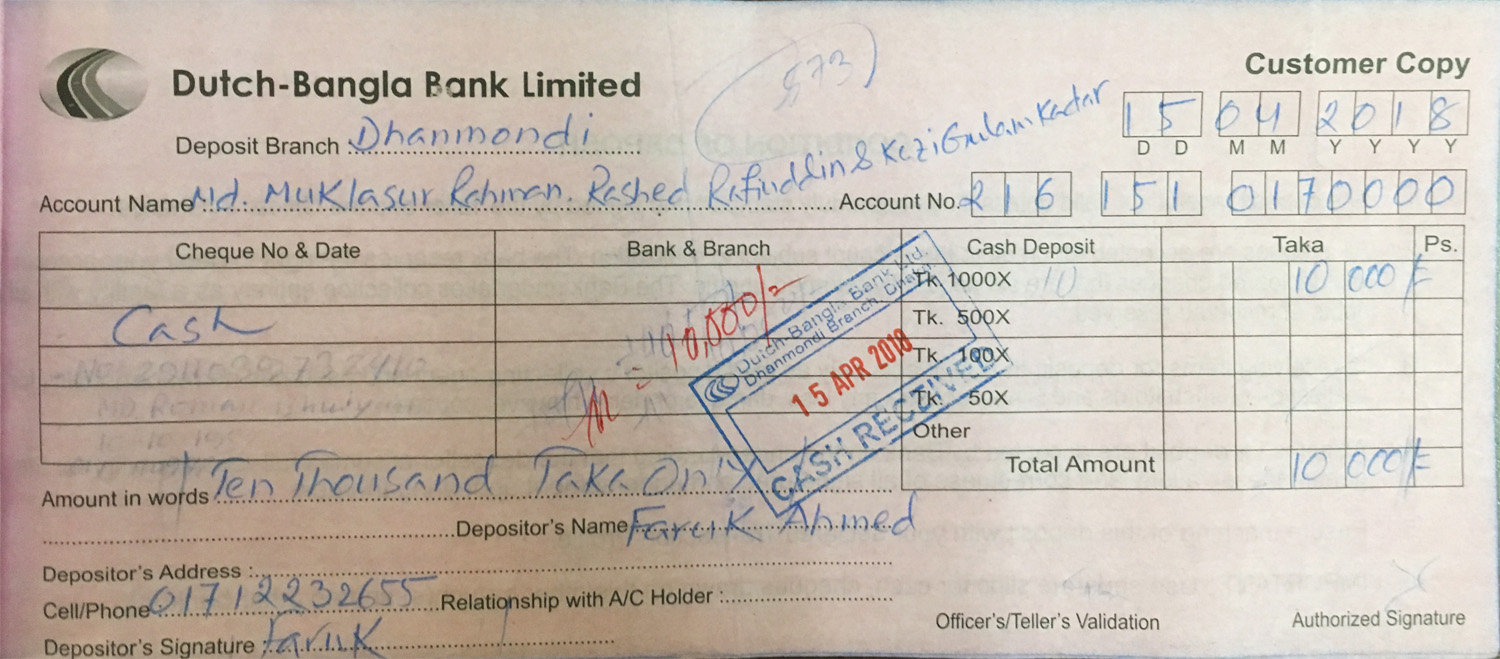 Dutch-Bangla Bank Limited
873)
Customer Copy
Deposit Branch : Dhanmondi
15 04 2018
D D M M Y Y Y Y
Account Name : Md. Muklasur Rahman. Rashed Rafiuddin & Kazi Gulam Kadar
Account No. 216 151 0170000
Cheque No & Date Bank & Branch Cash Deposit Taka Ps.
Tk. 1000X 10 10 000/=
Cash
10,000/=
Tk. 500X
Tk. 100X
Tk. 50X
Other
Dutch-Bangla Bank Ltd.
Dhanmondi Branch, Dhaka
15 APR 2018
CASH RECEIVED
Total Amount 10 000/=
Amount in words Ten Thousand Taka Only
Depositor's Name Faruk Ahmed
Depositor's Address :
Cell/Phone 01712232655 Relationship with A/C Holder :
Depositor's Signature : Faruk
Officer's/Teller's Validation Authorized Signature